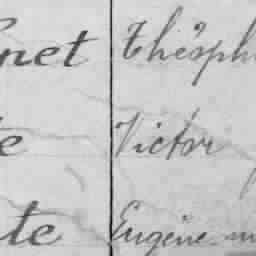 net Théoph
e Victor
te Eugène